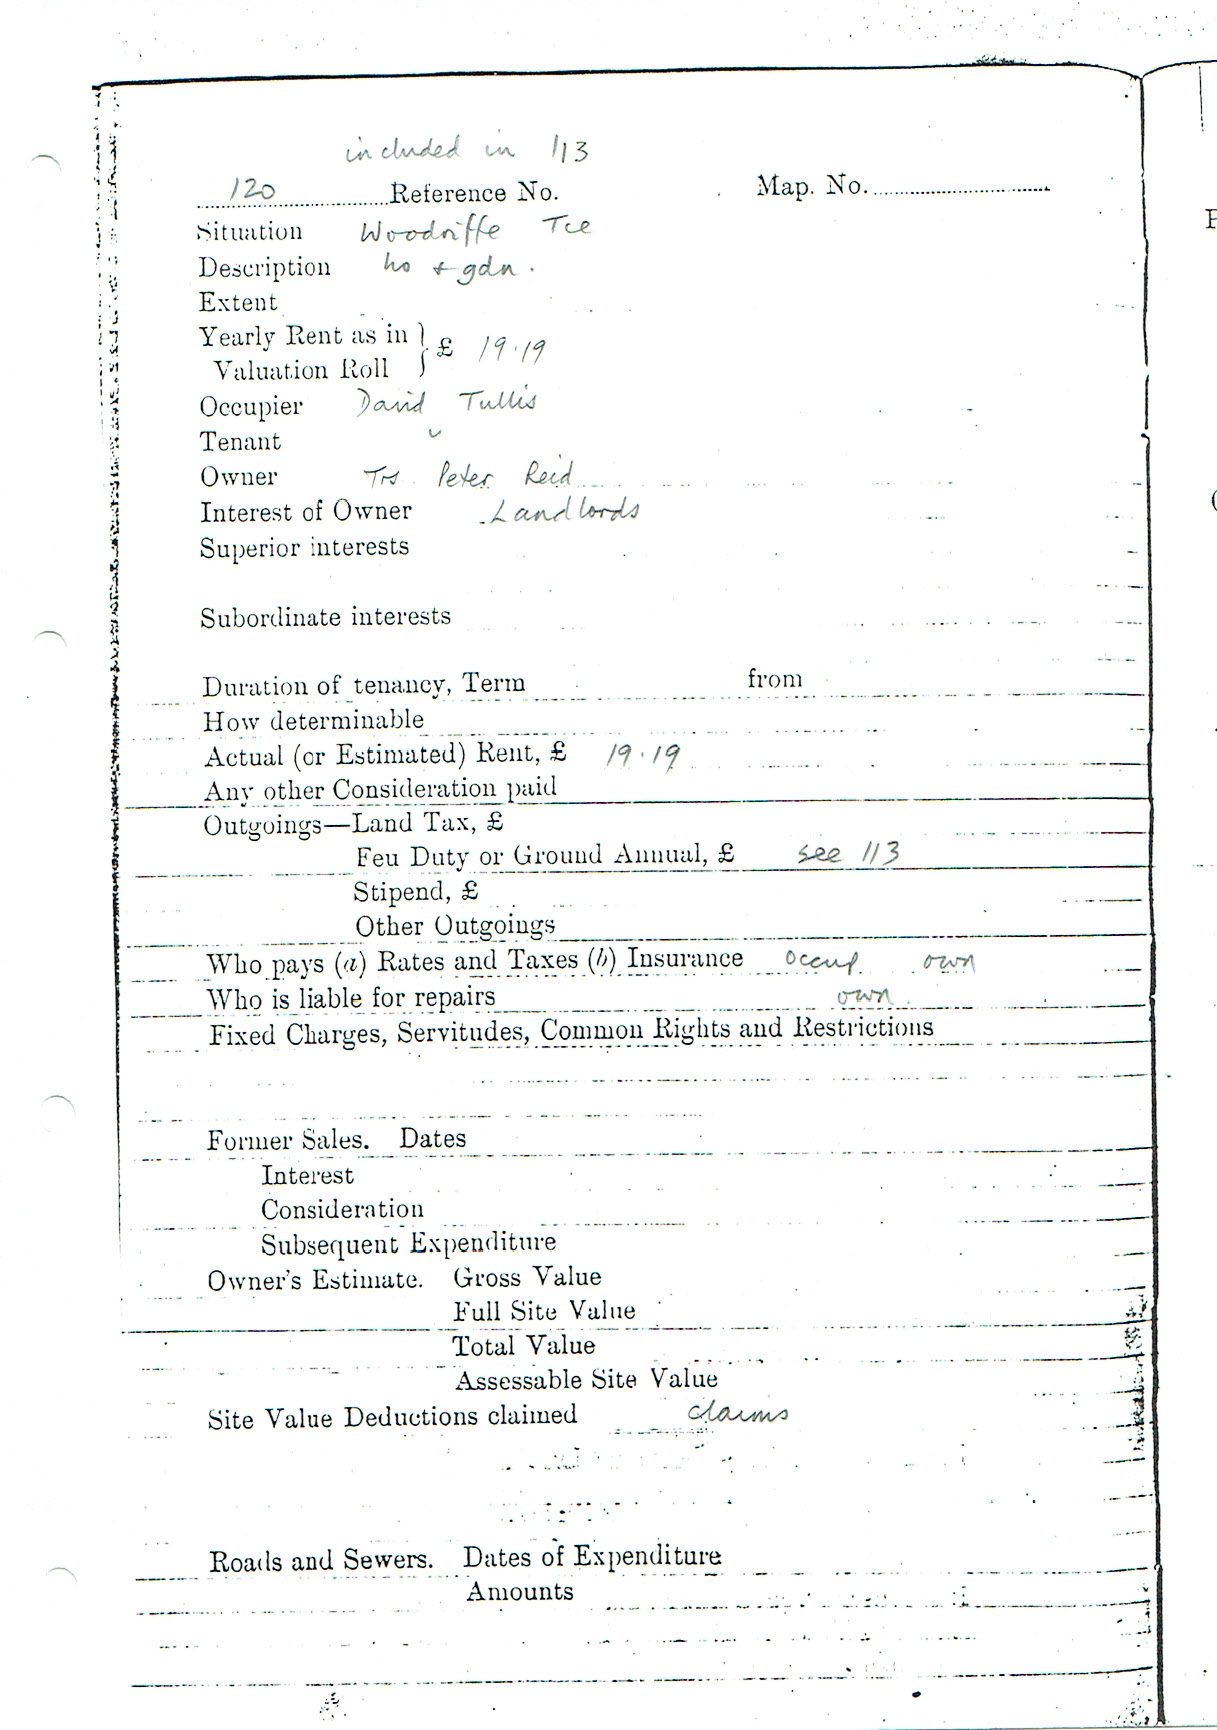 included in 113
120 Reference No. Map. No.
Situation Woodriffe Tce
Description ho + gdn.
Extent
Yearly Rent as in } £ 19.19
Valuation Roll
Occupier David Tullis
Tenant
Owner Trs Peter Reid
Interest of Owner Landlords
Superior interests
Subordinate interests
Duration of tenancy, Term from
How determinable
Actual (or Estimated) Rent, £ 19.19
Any other Consideration paid
Outgoings—Land Tax, £
Feu Duty or Ground Annual, £ see 113
Stipend, £
Other Outgoings
Who pays (a) Rates and Taxes (b) Insurance occup own
Who is liable for repairs own
Fixed Charges, Servitudes, Common Rights and Restrictions
Former Sales. Dates
Interest
Consideration
Subsequent Expenditure
Owner's Estimate. Gross Value
Full Site Value
Total Value
Assessable Site Value
Site Value Deductions claimed claims
Roads and Sewers. Dates of Expenditure
Amounts